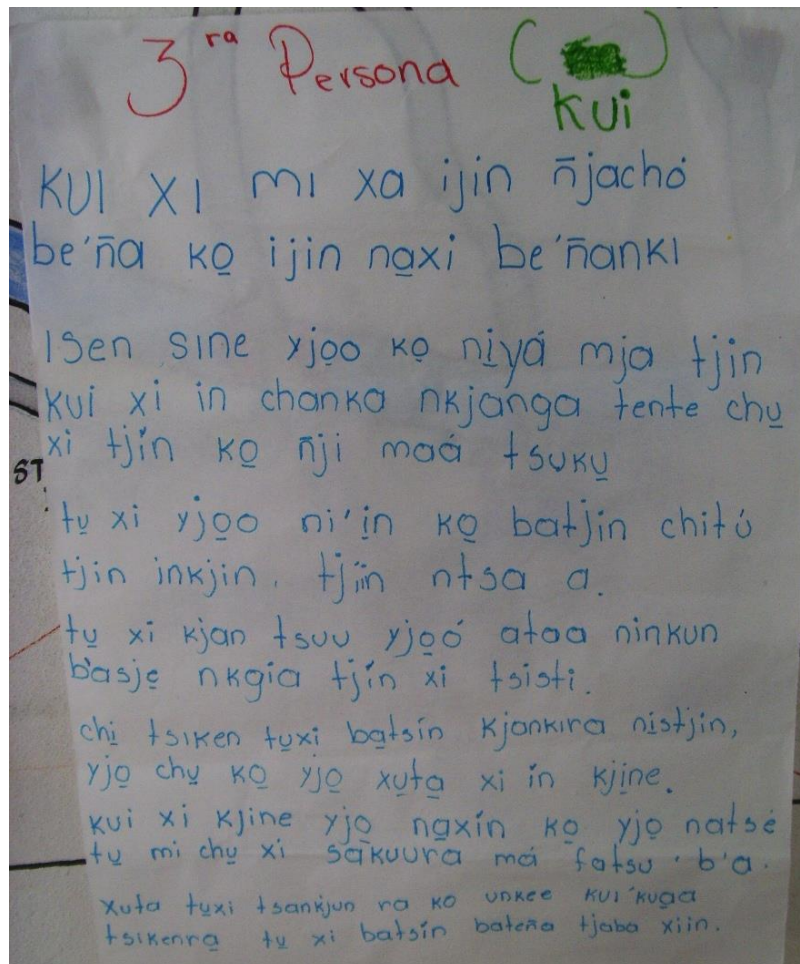 3ra Persona ( )
KUI
KUI XI mi xa ijin n̄jachó
be'n̄a ko̱ ijin na̱xi be'n̄anki
Isen sine yjo̱o ko̱ ni̱yá mja tjin
kui xi in chanka nkjanga tente chu̱
xi tjín ko̱ n̄ji maá tsuku̱
ST
tu̱ xi yjo̱o ni'in ko̱ batjin chitó
tjin inkjin. tjïn ntsa a.
tu̱ xi kjan tsuu yjo̱ó ataa ninkun
b'asje̱ nkgia tjín xi tsisti.
chi̱ tsiken tu̱xi ba̱tsín kjankira ni̱stjin,
yjo̱ chu̱ ko̱ yjo̱ xu̱ta̱ xi in kjine.
kui xi kjine yjo̱ na̱xín ko̱ yjo̱ natsé
tu̱ mi chu̱ xi sakuura má fatsu. b'a.
xuta tu̱xi tsankjun ra ko unkee kui'kuga
tsikenra̱ tu̱ xi batsín baten̄a tjaba xiin.